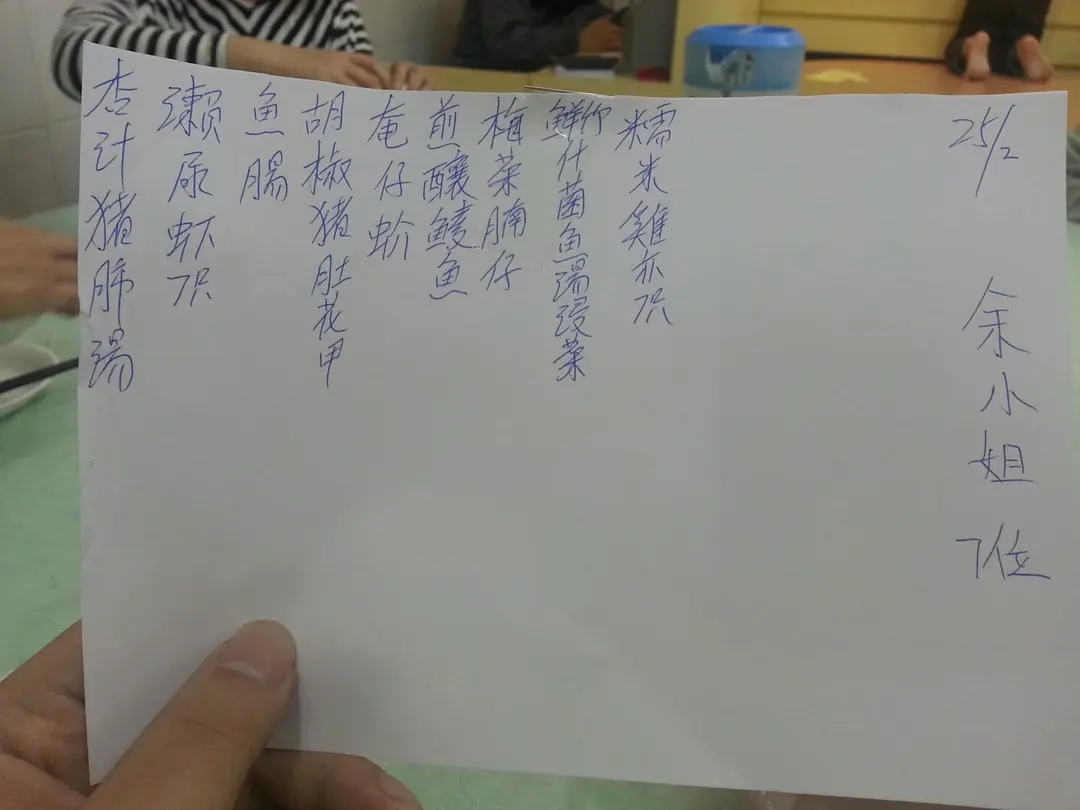 25/2
余小姐 7位
糯米雞亦7只
鮮竹什菌魚湯浸菜
梅菜腩仔
煎釀鯪魚
奄仔蚧
胡椒猪肚花甲
魚腸
瀨尿虾7只
杏汁猪肺湯